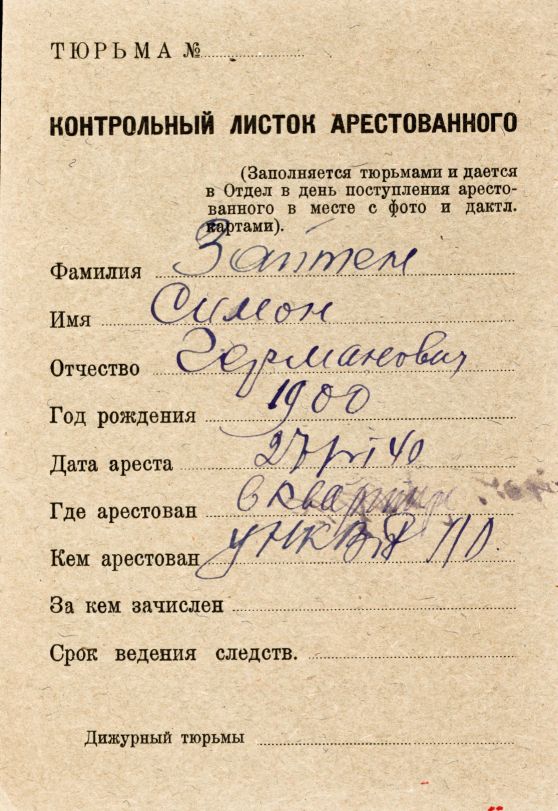 ТЮРЬМА №
КОНТРОЛЬНЫЙ ЛИСТОК АРЕСТОВАННОГО
(Заполняется тюрьмами и дается
в Отдел в день поступления аресто-
ванного в месте с фото и дактл.
картами).
Фамилия Зайтен
Имя Симон
Отчество Германович
Год рождения 1900
Дата ареста 27/VI 40
Где арестован в квартир
Кем арестован УНКВД
За кем зачислен
Срок ведения следств.
Дижурный тюрьмы